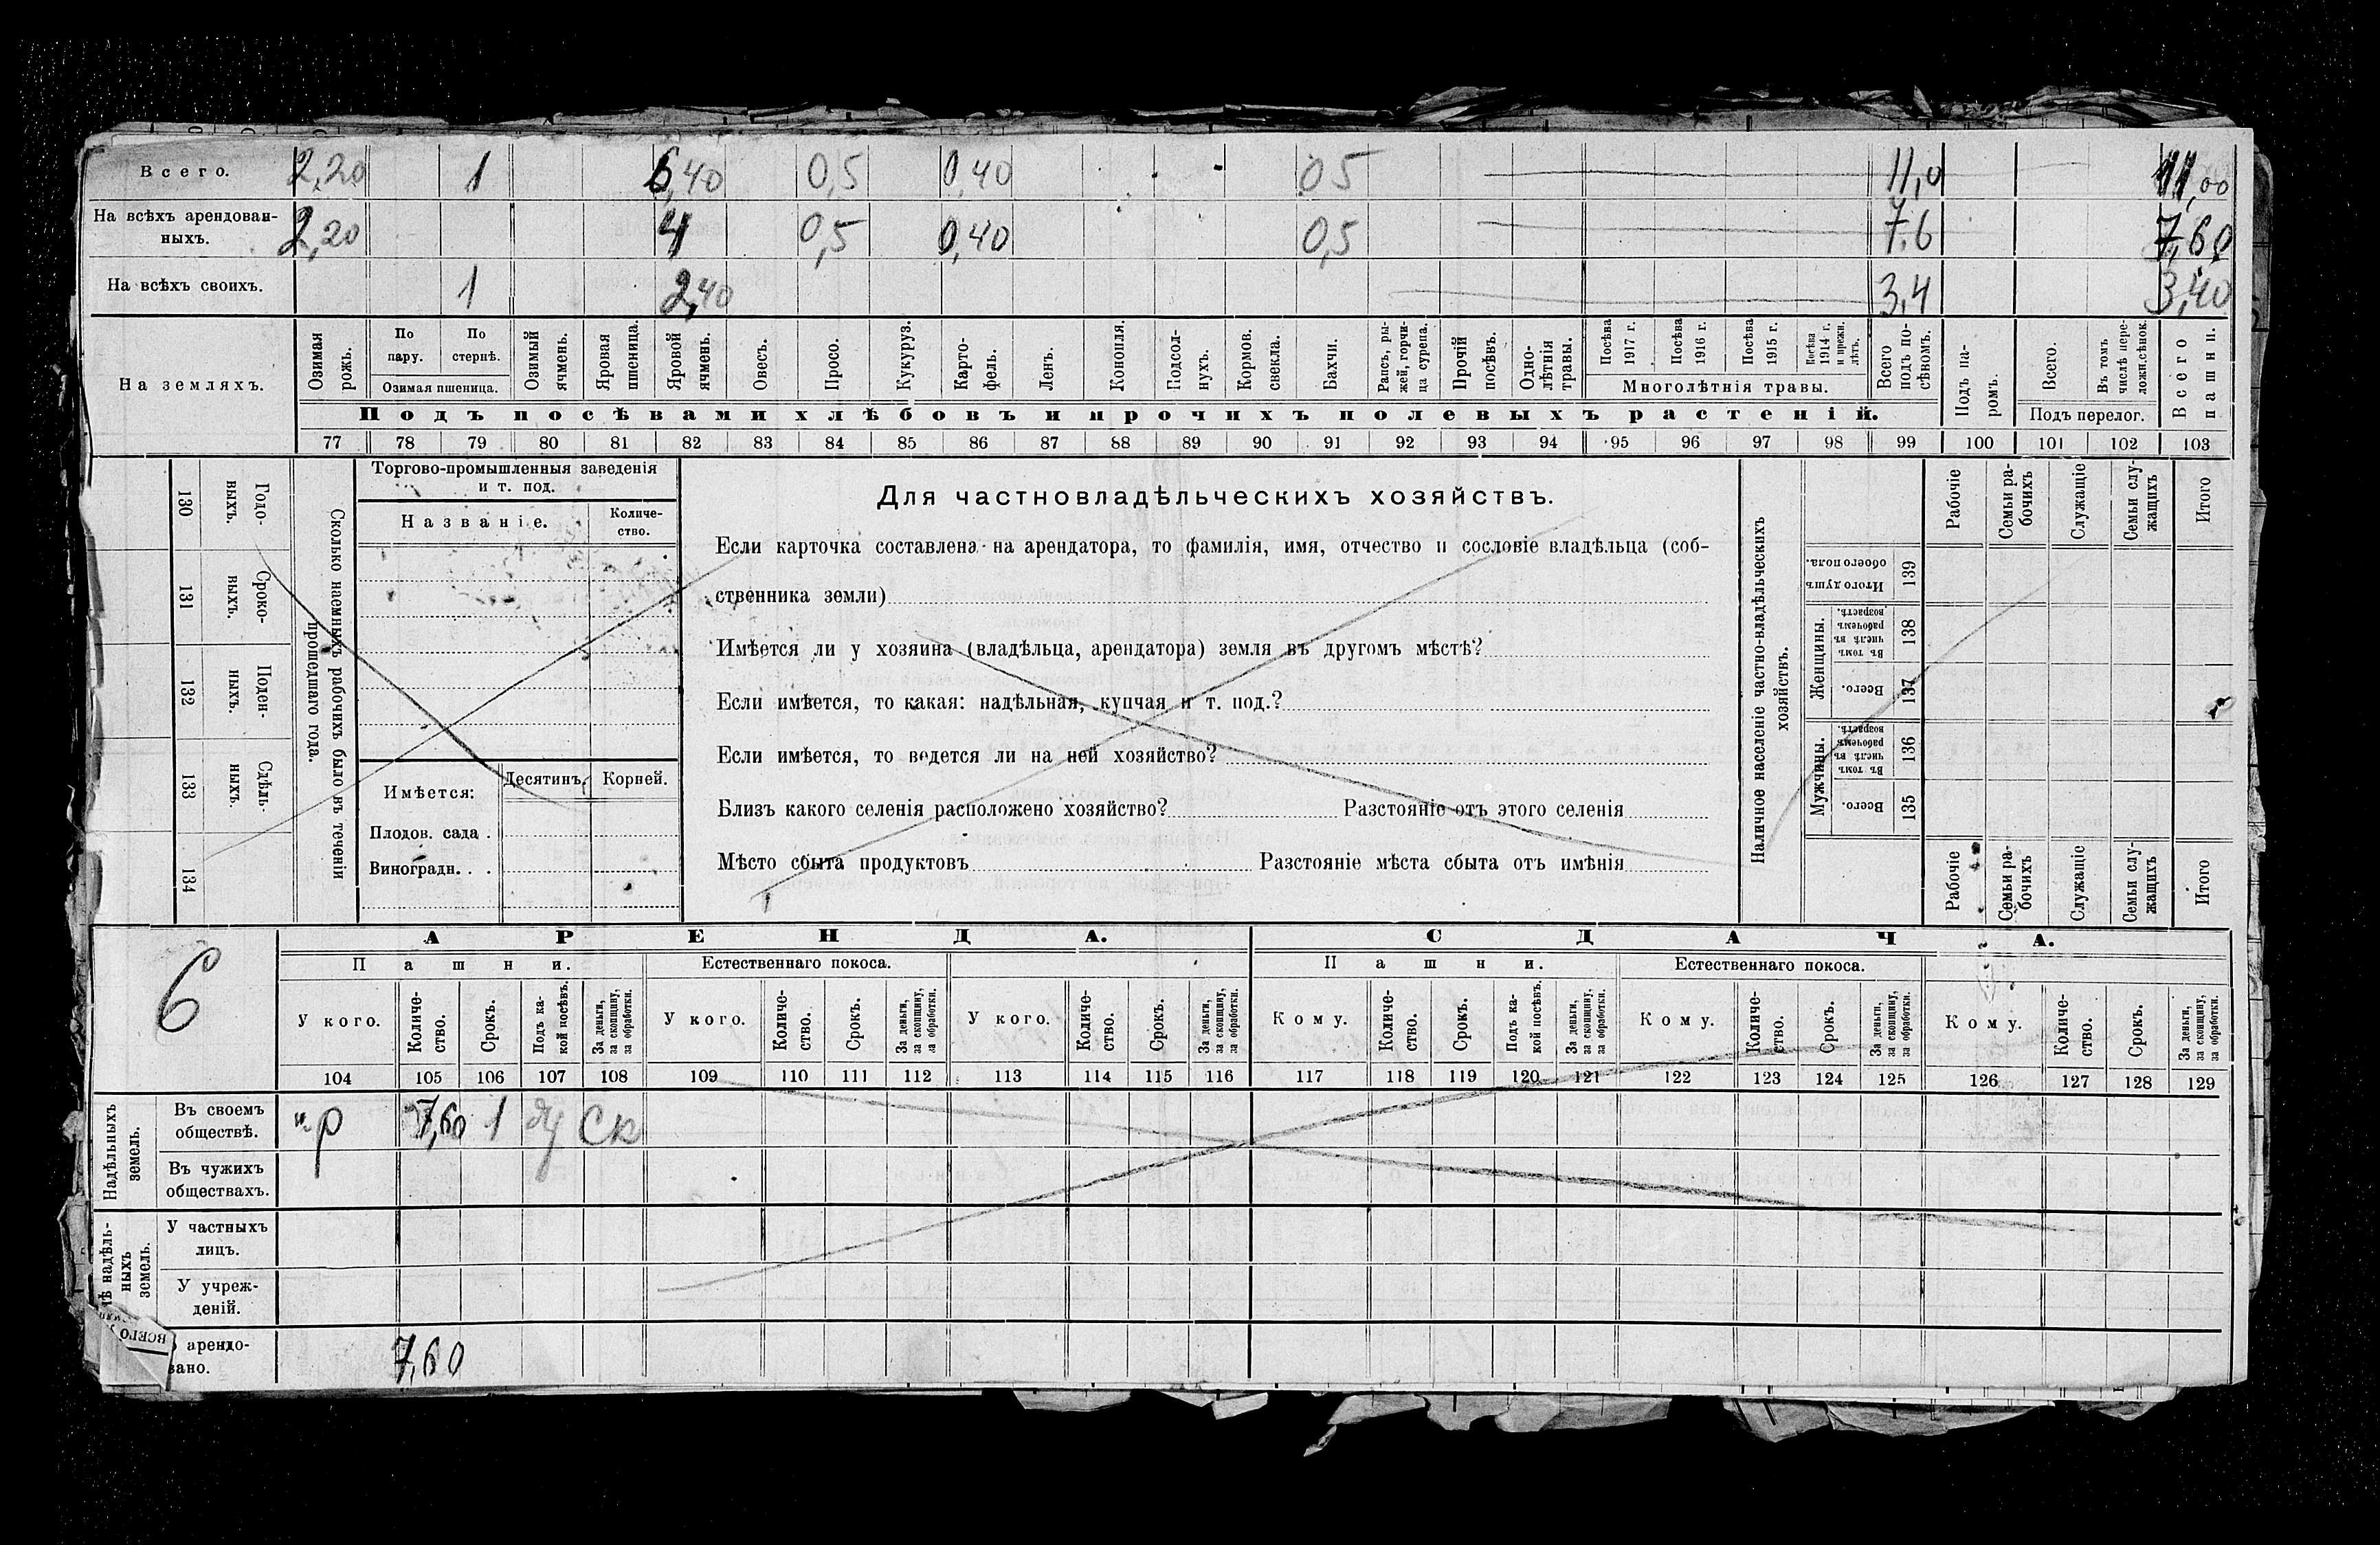 Всего. 2,20 1 6,40 0,5 0,40 05 11,0 11,00
На всѣхъ арендован-
ныхъ. 2,20 4 0,5 0,40 0,5 7.6 7,60
На всѣхъ своихъ. 1 2,40 3,4 3,40
На земляхъ.
Озимая рожь.
По пару.
По стернѣ.
Озимая пшеница.
Озимый ячмень.
Яровая пшеница.
Яровой ячмень.
Овесъ.
Просо.
Кукуруз.
Карто-
фель.
Ленъ.
Конопля.
Подсол-
нухъ.
Кормов. свекла.
Бахчи.
Рапсъ, ры-
жей, горчи-
ца сурепа.
Прочій посѣвъ.
Одно-
лѣтнія травы.
Посѣва 1917 г.
Посѣва 1916 г.
Посѣва 1915 г.
Посѣва 1914 г. и прежн. лѣтъ.
Многолѣтнія травы.
Всего подъ по-
сѣвомъ.
Подъ па-
ромъ.
Всего.
Въ томъ числѣ пере-
ложн.сѣнок.
Подъ перелог.
Всего пашни.
Подъ посѣвами хлѣбовъ и прочихъ полевыхъ растеній.
77 78 79 80 81 82 83 84 85 86 87 88 89 90 91 92 93 94 95 96 97 98 99 100 101 102 103
130 Годо-
выхъ.
131 Сроко-
выхъ.
132 Поден-
ныхъ.
133 Сдѣль-
ныхъ.
134
Сколько наемныхъ рабочихъ было въ теченіи
прошедшаго года.
Торгово-промышленныя заведенія
и т. под.
Названіе.
Количе-
ство.
Имѣется:
Десятинъ.
Корней.
Плодов. сада .
Виноградн. . .
Для частновладѣльческихъ хозяйствъ.
Если карточка составлена на арендатора, то фамилія, имя, отчество и сословіе владѣльца (соб-
ственника земли)
Имѣется ли у хозяина (владѣльца, арендатора) земля въ другомъ мѣстѣ?
Если имѣется, то какая: надѣльная, купчая и т. под.?
Если имѣется, то ведется ли на ней хозяйство?
Близъ какого селенія расположено хозяйство? Разстояніе отъ этого селенія
Мѣсто сбыта продуктовъ Разстояніе мѣста сбыта отъ имѣнія
Наличное населеніе частно-владѣльческихъ
хозяйствъ.
Рабочіе
Семьи ра-
бочихъ
Служащіе
Семьи слу-
жащихъ
Итого
Итого душъ обоего пола. 139
Женщины.
Въ томъ числѣ въ рабочемъ возрастѣ. 138
Всего. 137
Мужчины.
Въ томъ числѣ въ рабочемъ возрастѣ. 136
Всего. 135
Рабочіе
Семьи ра-
бочихъ
Служащіе
Семьи слу-
жащихъ
Итого
6
АРЕНДА.
СДАЧА.
Пашни.
Естественнаго покоса.
Пашни.
Естественнаго покоса.
У кого.
Количе-
ство.
Срокъ.
Подъ ка-
кой посѣвъ.
За деньги, за скопщину, за обработки.
У кого.
Количе-
ство.
Срокъ.
За деньги, за скопщину, за обработки.
У кого.
Количе-
ство.
Срокъ.
За деньги, за скопщину, за обработки.
Кому.
Количе-
ство.
Срокъ.
Подъ ка-
кой посѣвъ.
За деньги, за скопщину, за обработки.
Кому.
Количе-
ство.
Срокъ.
За деньги, за скопщину, за обработки.
Кому.
Количе-
ство.
Срокъ.
За деньги, за скопщину, за обработки.
104 105 106 107 108 109 110 111 112 113 114 115 116 117 118 119 120 121 122 123 124 125 126 127 128 129
Надѣльныхъ
земель.
Въ своемъ
обществѣ. 7,60 1 Ск
Въ чужихъ
обществахъ.
надѣль-
ныхъ
земель.
У частныхъ
лицъ.
У учреж-
деній.
ВСЕГО
арендо-
вано. 7,60